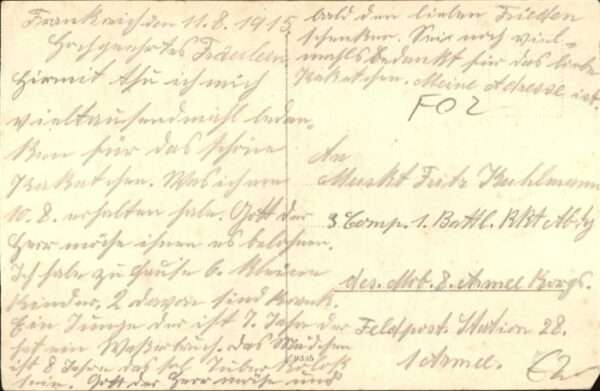 Frankreich den 11.8.1915
Hochgeehrtes Fräulein
Hirmit thu ich mich
vieltausendmahl bedan-
ken für das schöne
Paketchen. Was ich am
10.8. erhalten habe. Gott der
Herr möche ihnen es belohnen.
Ich habe zu Hause 6. kleiene
Kinder. 2 davon sind krank.
Ein Junge der ist 7. Jahre der
hat ein Waßerbruch. Das Mädchen
ist 8 Jahre das sol Tuberkolosk
sein. Gott der Herr möche uns
bald den lieben Frieden
schenken. Sei noch viel-
mahls bedankt für das liebe
Paketchen. Meine Adresse ist.
FO2
An
Muskt Fritz Kuhlmann
3. Comp. 1. Battl.
des. Mob. 8. Armee Korps.
Feldpost. Station 28.
1 Armee.